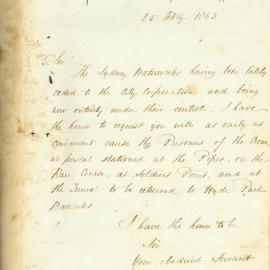 25 Feby. 1843
Sir
The Sydney Waterworks having been lately
ceded to the City Corporation and being
now entirely under their control, I have
the honor to request you will as early as
convenient cause the Prisoners of the Crown
at present stationed at the Pipes, on the
Race Course, at Soldiers Point, and at
the Tunnel to be returned to Hyde Park
Barracks
I have the honor to be
Sir
Your obedient Servant